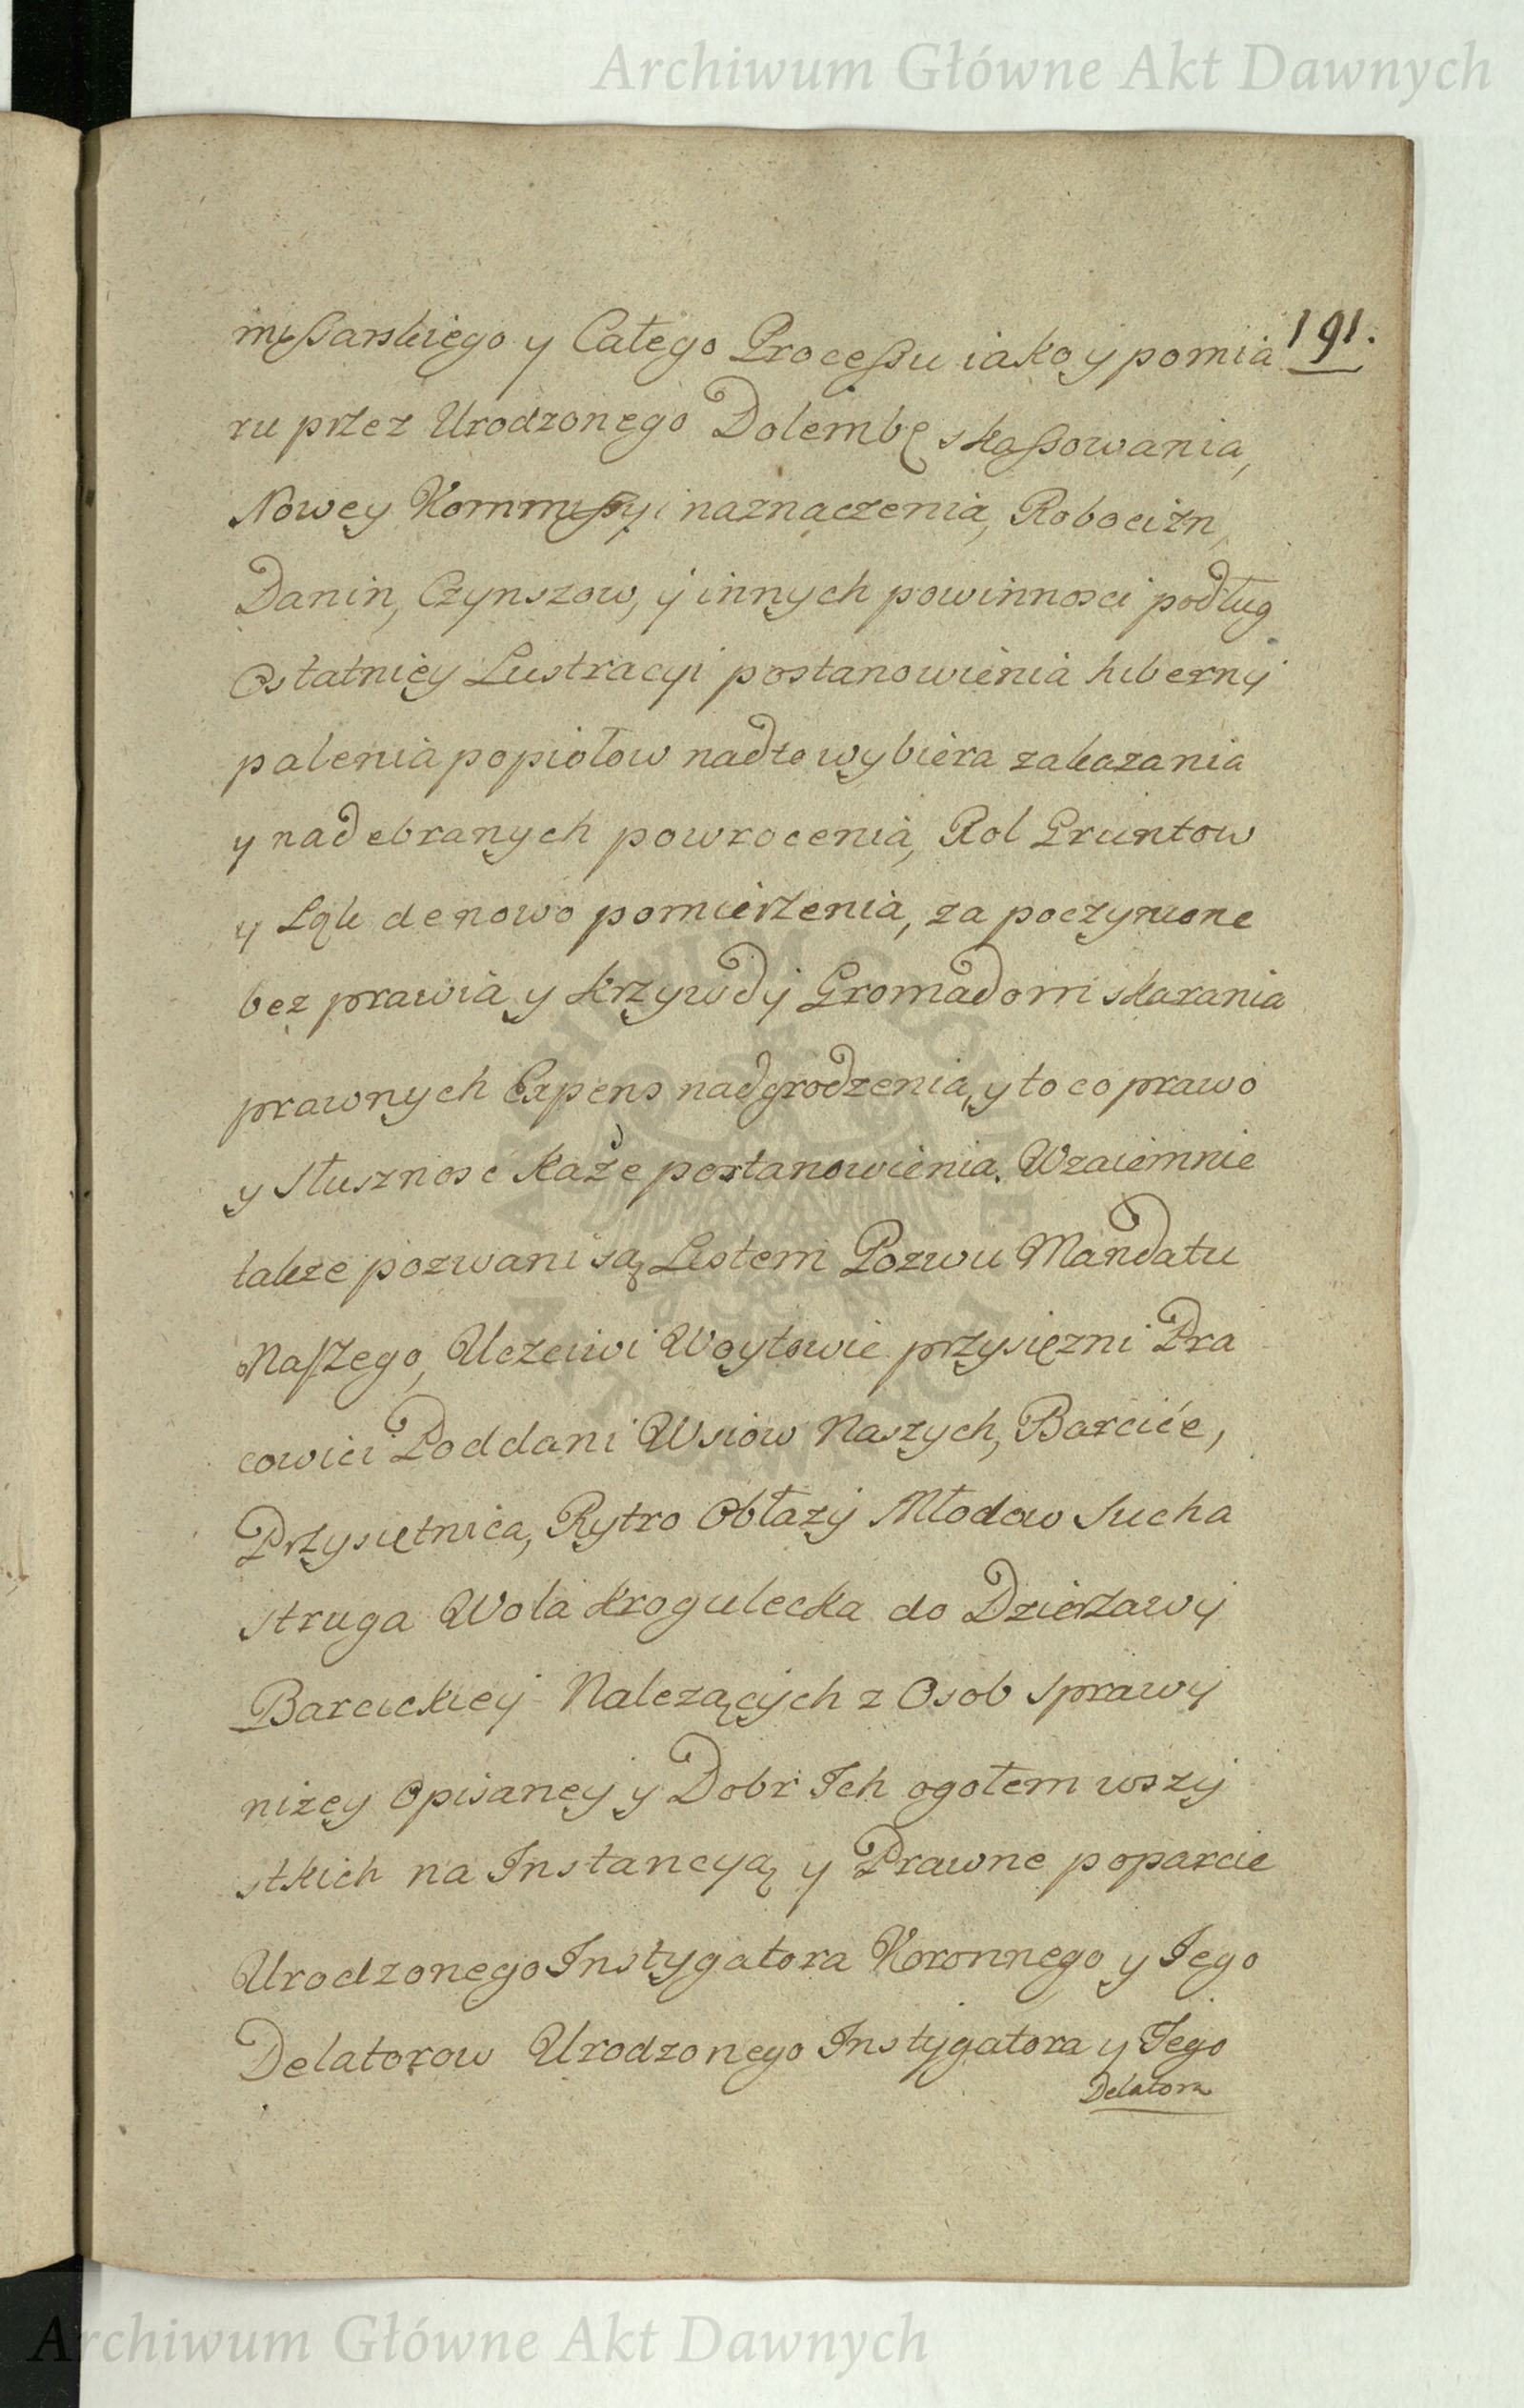 Archiwum Główne Akt Dawnych
191.
mißarskiego y Całego Proceßu iako y pomia
ru przez Urodzonego Dolembę skaßowania,
Nowey Kommißyi naznaczenia, Robocizn,
Danin, Czynszow, y innych powinnosci podług
Ostatniey Lustracyi postanowienia hiberny
palenia popiołow nadto wybiera zakazania
y nad ebranych powrocenia, Rol Gruntow
y Łąk denowo pomierzenia, za poczynione
bez prawia y krzywdy Gromadom skarania
prawnych Expens nadgrodzenia, y to co prawo
y słusznosc każe postanowienia. Wzaiemnie
takze pozwani są Listem Pozwu Mandatu
Naszego, Uczciwi Woytowie przysięzni Pra
cowici Poddani Wsiow Naszych, Barcice,
Przysietnica, Rytro Obłazy Młodow Sucha
struga Wola Krogulecka do Dzierzawy
Barcickiey Nalezących z Osob sprawy
nizey Opisaney y Dobr Ich ogołem wszy
stkich na Instancyą y Prawne poparcie
Urodzonego Instygatora Koronnego y Iego
Delatorow Urodzonego Instygatora y Iego
Delatora
ARCHIWUM GŁÓWNE AKT DAWNYCH
Archiwum Główne Akt Dawnych